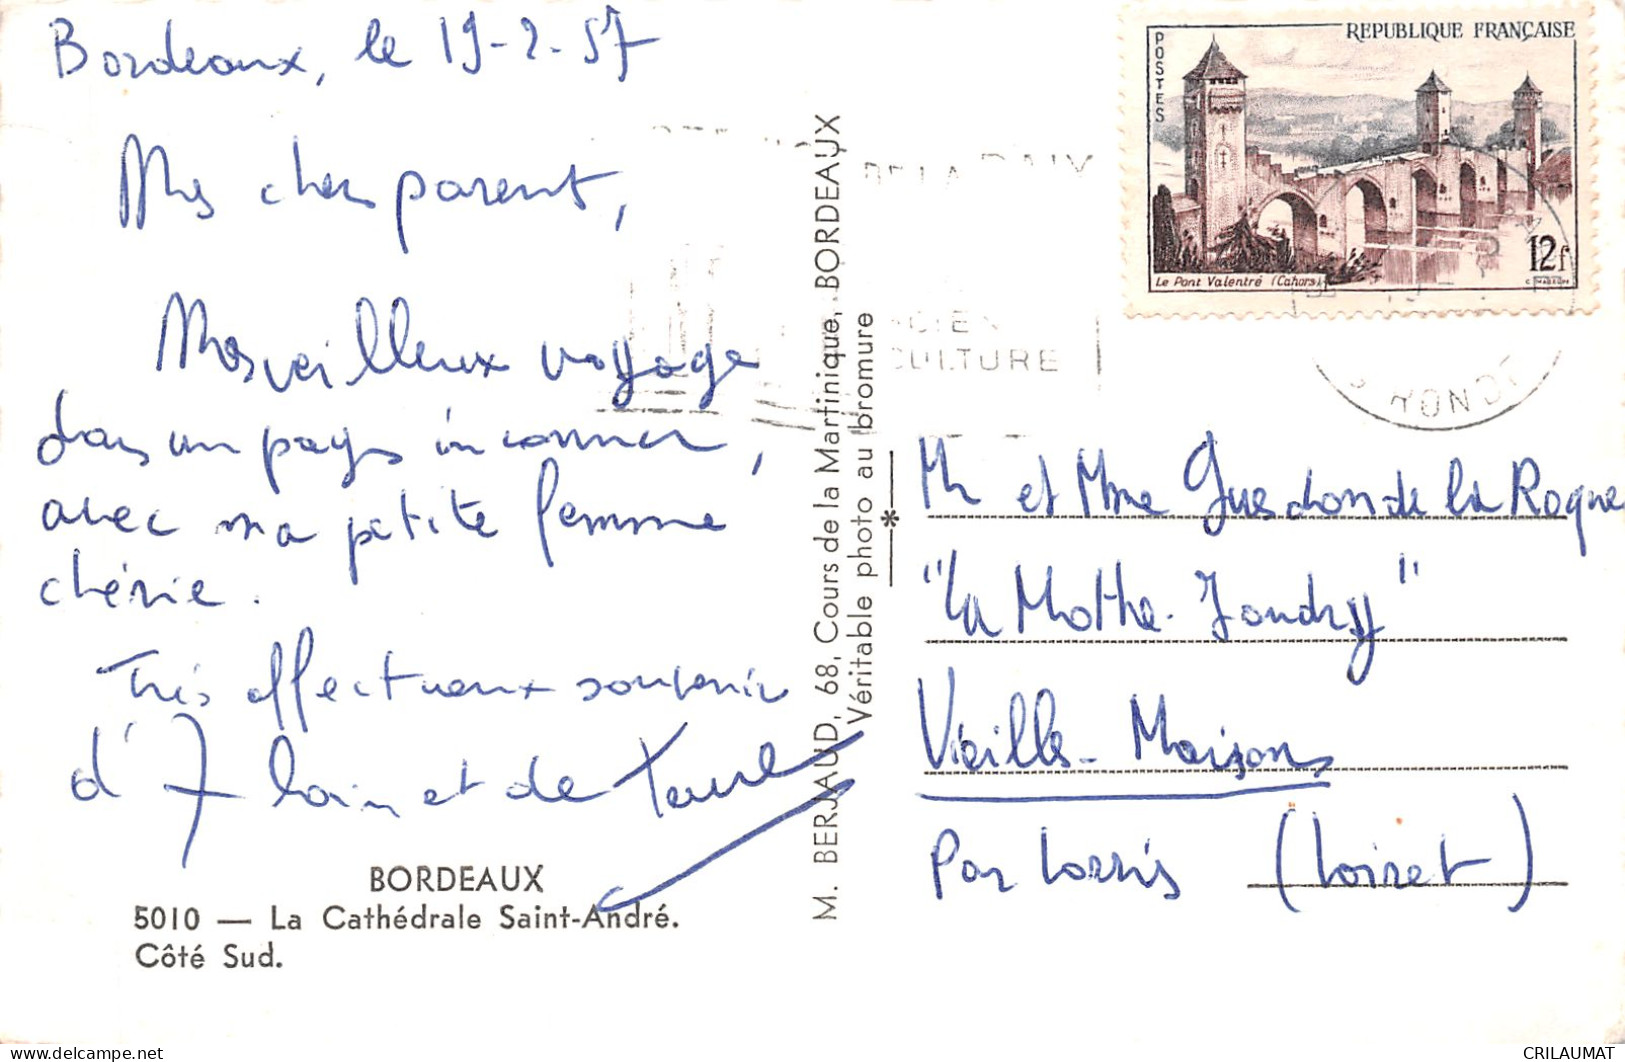 Bordeaux, le 19-2-57
Mes chers parent,
Merveilleux voyage
dans un pays inconnu,
avec ma petite femme
chérie.
Très affectueux souvenir
d'Alain et de
BORDEAUX
5010 — La Cathédrale Saint-André.
Côté Sud.
M. BERJAUD, 68, Cours de la Martinique, BORDEAUX
Véritable photo au bromure
POSTES
REPUBLIQUE FRANÇAISE
Le Pont Valentré (Cahors)
12f
CULTURE
GIRONDE
Mr et Mme Guesdon de la Roque
"La Mothe-Joudry"
Vieilles-Maisons
Par Lorris (Loiret)
CRILAUMAT
delcampe.net